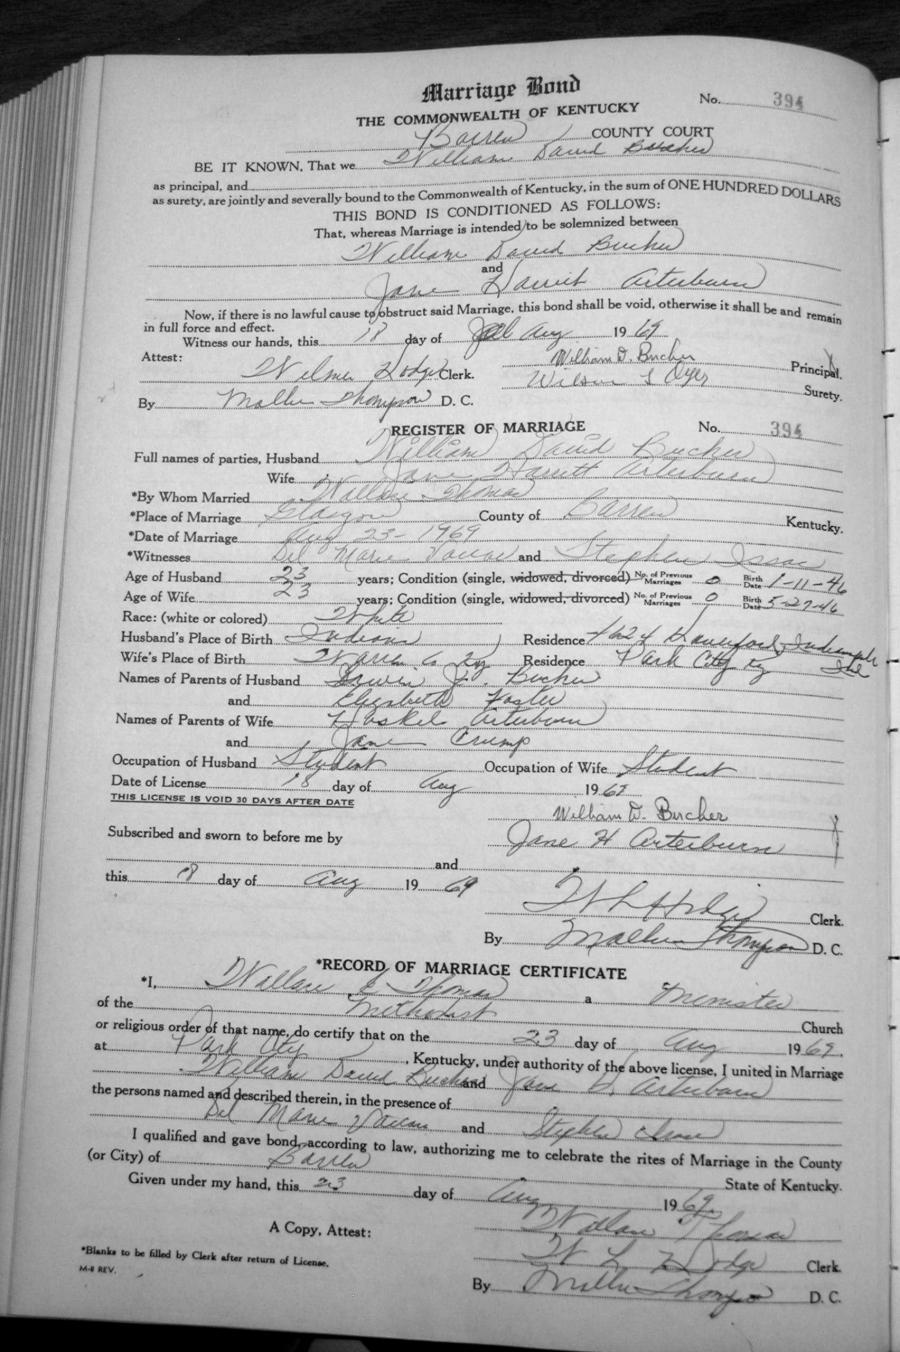 Marriage Bond
No. 394
THE COMMONWEALTH OF KENTUCKY
Barren COUNTY COURT
BE IT KNOWN, That we William David Bucher
as principal, and
as surety, are jointly and severally bound to the Commonwealth of Kentucky, in the sum of ONE HUNDRED DOLLARS
THIS BOND IS CONDITIONED AS FOLLOWS:
That, whereas Marriage is intended to be solemnized between
William David Bucher
and
Jane Harriet Arterburn
Now, if there is no lawful cause to obstruct said Marriage, this bond shall be void, otherwise it shall be and remain
in full force and effect.
Witness our hands, this 18 day of Aug 1969
Attest: William D. Bucher Principal.
Hodge Clerk. Wilson L Dyer Surety.
By Mollie Thompson D. C.
REGISTER OF MARRIAGE No. 394
Full names of parties, Husband William David Bucher
Wife Jane Harriett Arterburn
*By Whom Married Wallace Thomas
*Place of Marriage Glasgow County of Barren Kentucky.
*Date of Marriage Aug 23 - 1969
*Witnesses Marie and Stephen Isaac
Age of Husband 23 years; Condition (single, widowed, divorced) No. of Previous Marriages 0 Birth Date 1-11-46
Age of Wife 23 years; Condition (single, widowed, divorced) No. of Previous Marriages 0 Birth Date 5-27-46
Race: (white or colored) White
Husband's Place of Birth Indiana Residence 4624 Haverford, Indianapls
Wife's Place of Birth Warren Co Ky Residence Park City Ky Ind
Names of Parents of Husband Irwin J. Bucher
and Elizabeth Foster
Names of Parents of Wife Haskel Arterburn
and Jane Crump
Occupation of Husband Student Occupation of Wife Student
Date of License 18 day of Aug 1969
THIS LICENSE IS VOID 30 DAYS AFTER DATE
William D. Bucher
Subscribed and sworn to before me by Jane H Arterburn
and
this 18 day of Aug 19 69
W L Hodge Clerk.
By Mollie Thompson D. C.
*RECORD OF MARRIAGE CERTIFICATE
*I, Wallace E Thomas a Minister
of the Methodist Church
or religious order of that name, do certify that on the 23 day of Aug 1969.
at Park City, Kentucky, under authority of the above license, I united in Marriage
William David Bucher and Jane H. Arterburn
the persons named and described therein, in the presence of
Marie and Stephen Isaac
I qualified and gave bond, according to law, authorizing me to celebrate the rites of Marriage in the County
(or City) of Barren State of Kentucky.
Given under my hand, this 23 day of Aug 1969
Wallace Thomas
A Copy, Attest: W L Hodge Clerk.
*Blanks to be filled by Clerk after return of License.
M-8 REV.
By Mollie Thompson D. C.